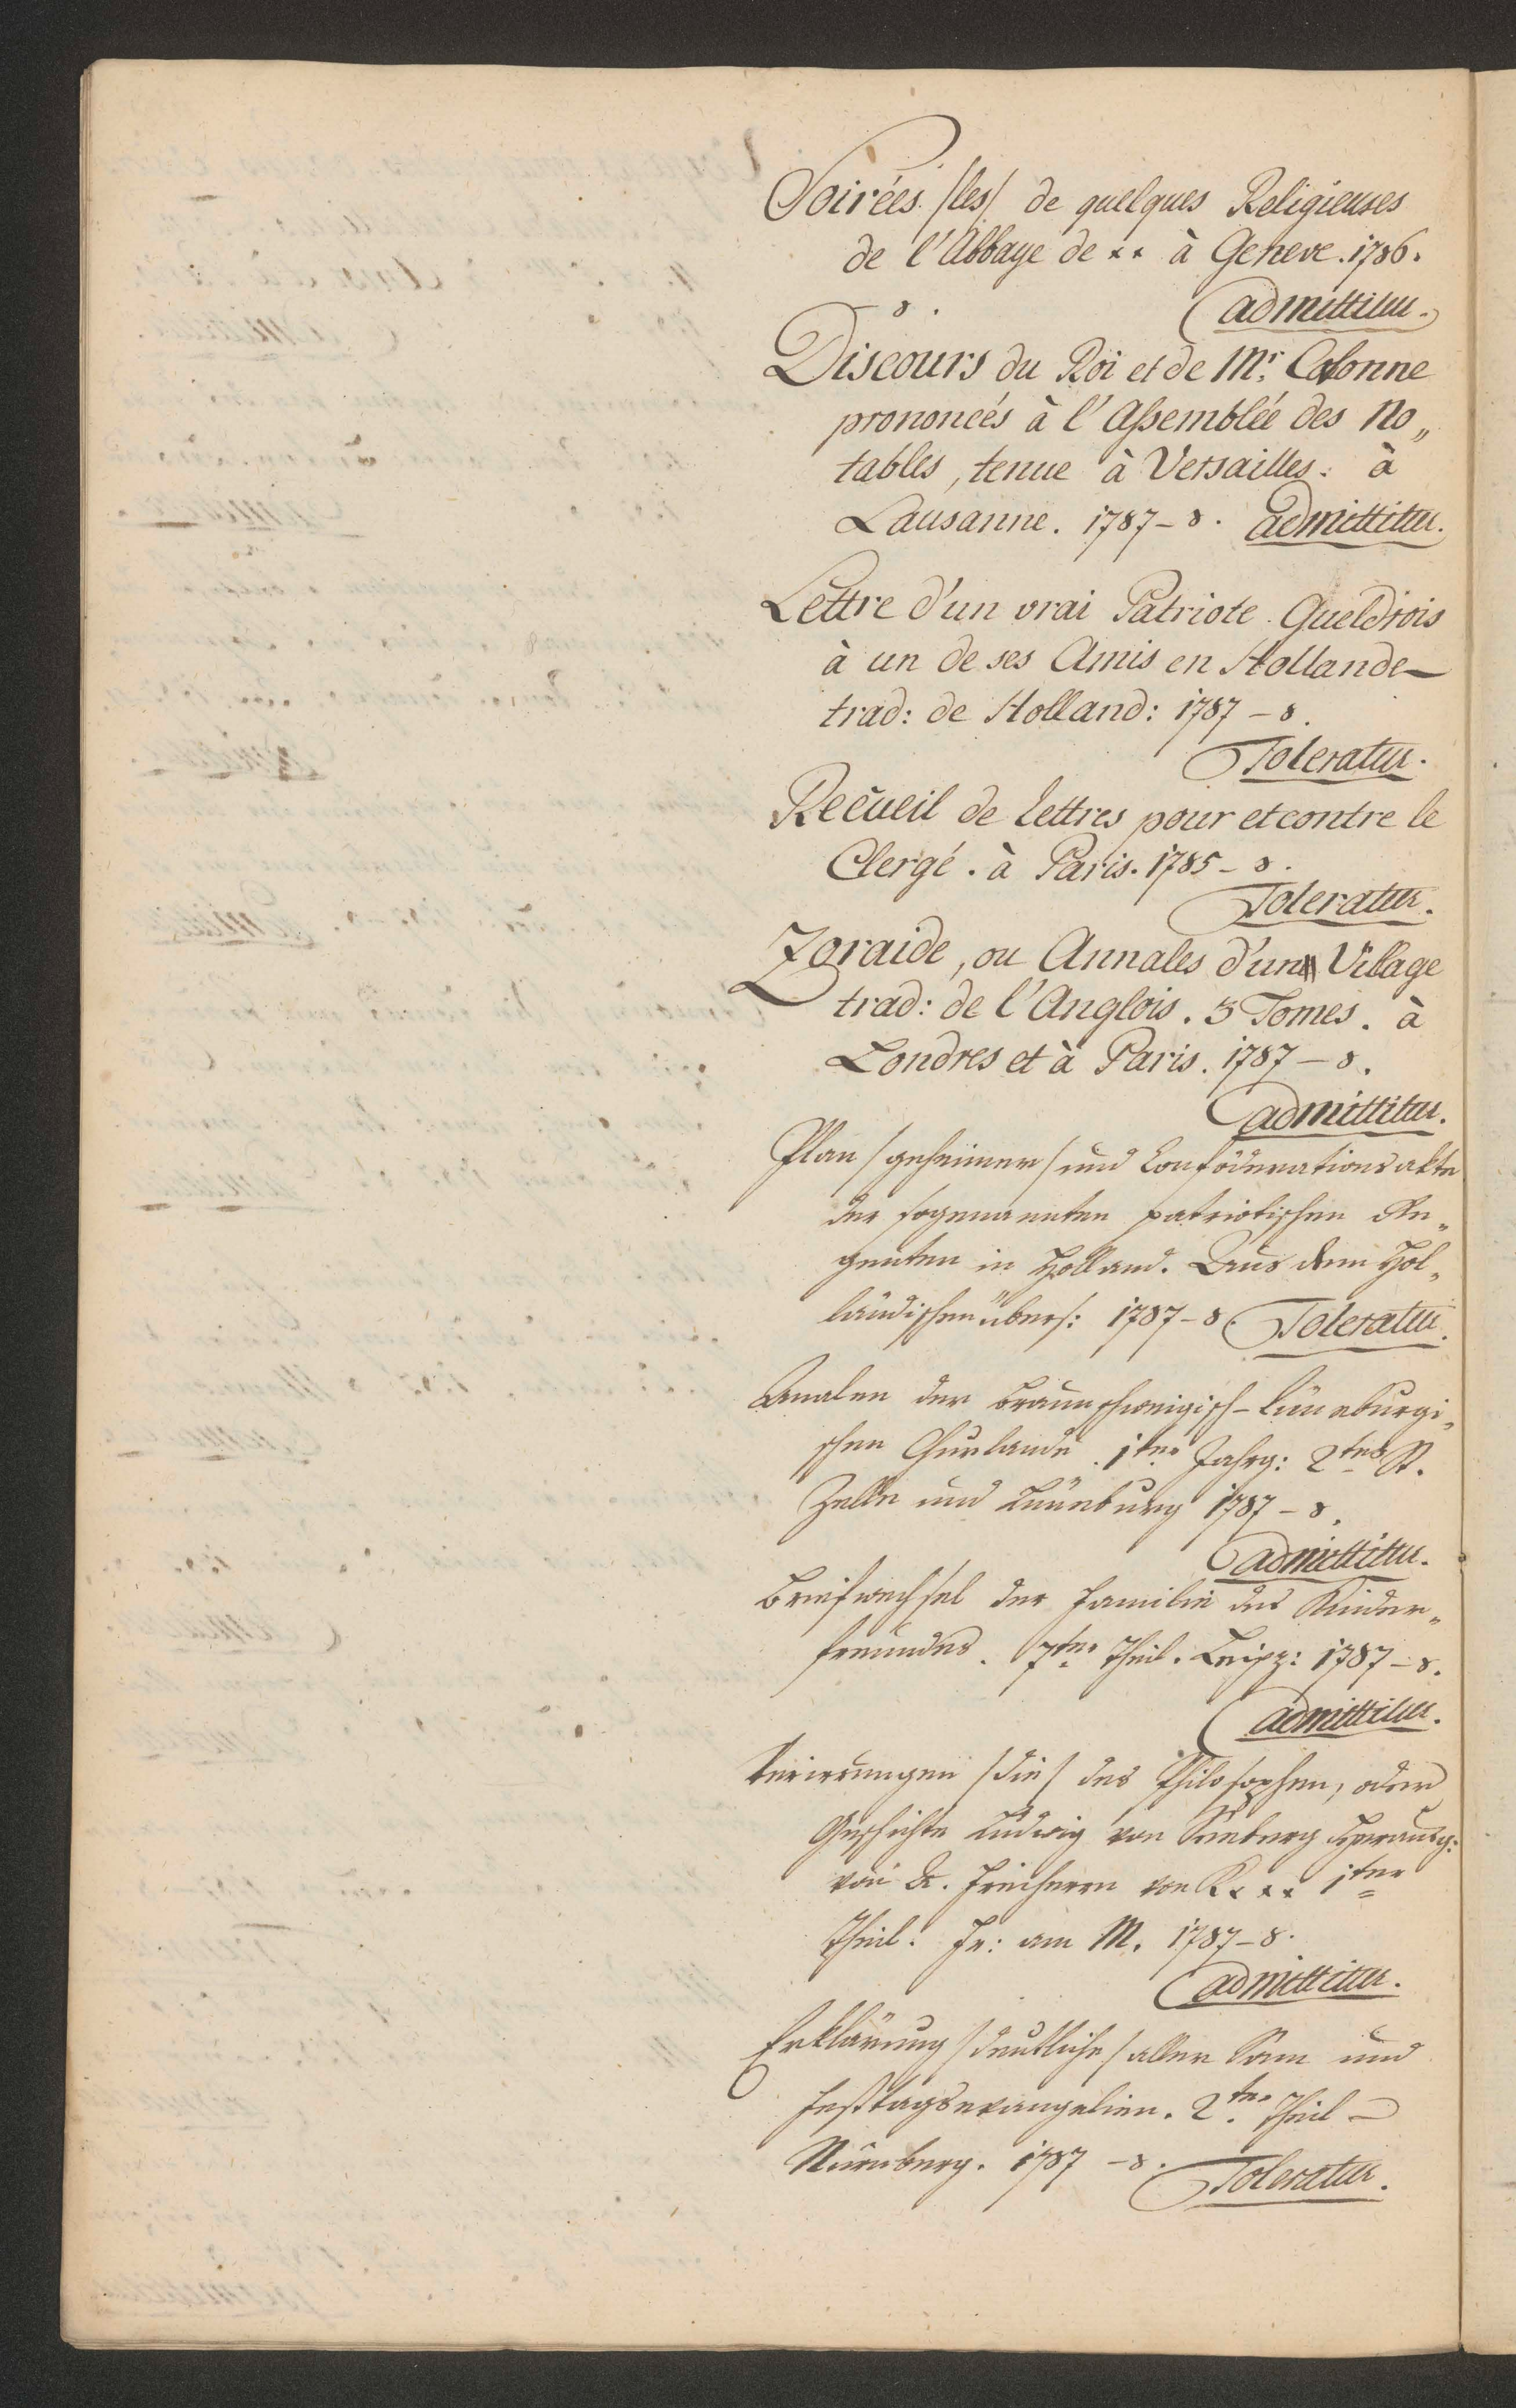 Soirées /les/ de quelques Religieuses
de l'Abbaye de ** à Geneve. 1786.
8. admittitur.
Discours du Roi et de Mr. Calonne
prononcés à l'Assemblée des No„
tables, tenue à Versailles. à
Lausanne. 1787 - 8. admittitur.
Lettre d'un vrai Patriote Gueldrois
à un de ses Amis en Hollande
trad: de Holland: 1787 - 8.
Toleratur.
Recueil de Lettres pour et contre le
Clergé. à Paris. 1785 - 8.
Toleratur.
Zoraide, ou Annales d'un Village
trad: de l'Anglois. 3 Tomes. à
Londres et à Paris. 1787 - 8.
admittitur.
Plan /geheimer/ und Conföderationsakte
der sogenannten patriotischen Re„
genten in Holland. Aus dem Hol„
ländischen übers: 1787 - 8. Toleratur.
Annalen der Braunschweigisch-Lüneburgi„
schen Churlande. 1ter Jahrg: 2tes St.
Zelle und Lüneburg 1787 - 8.
admittitur.
Briefwechsel der Familie des Kinder„
freundes. 7ter Theil. Leipz: 1787 - 8.
admittitur.
Verirrungen /die/ des Philosophen, oder
Geschichte Ludwig von Seeberg Herausg:
von A. Freiherrn von K*** 1ter
Theil. Fr: am M. 1787 - 8.
admittitur.
Erklärung /deutliche/ aller Sonn und
Festtagsevangelien. 2ter Theil
Nürnberg. 1787 - 8. Toleratur.